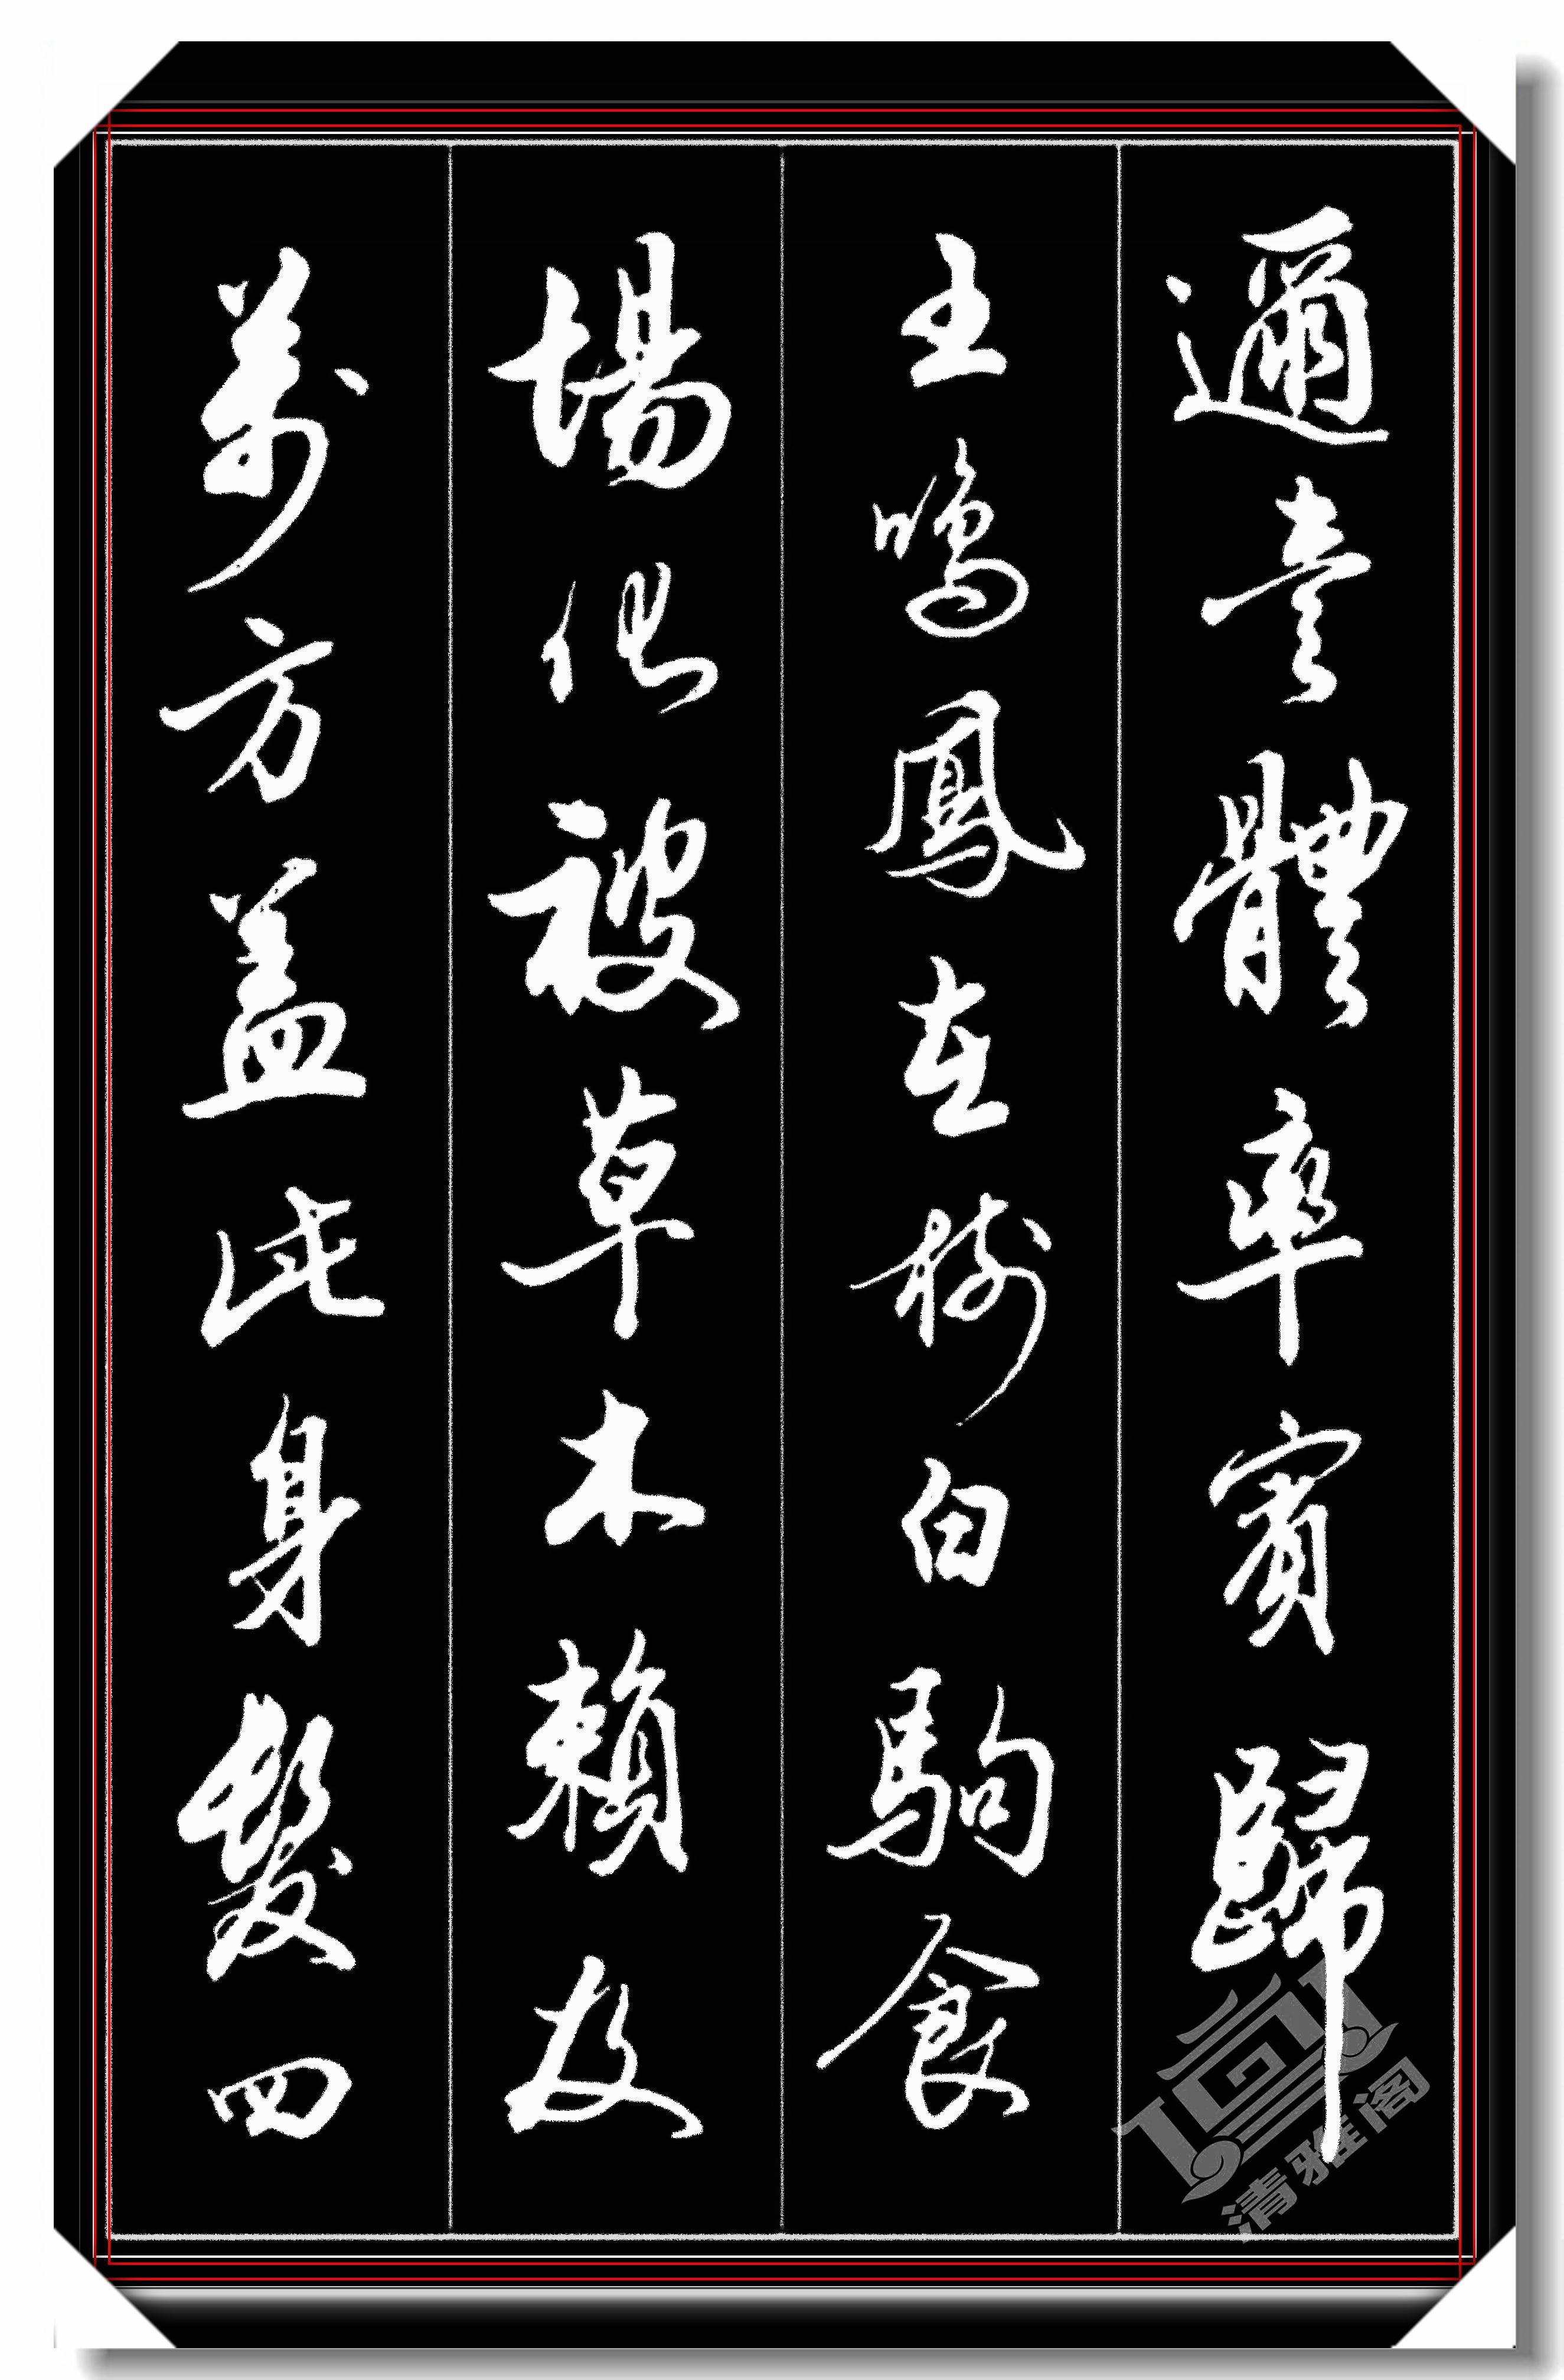 邇壹體率賓歸
王鳴鳳在樹白駒食
場化被草木賴及
萬方蓋此身髮四
清雅阁